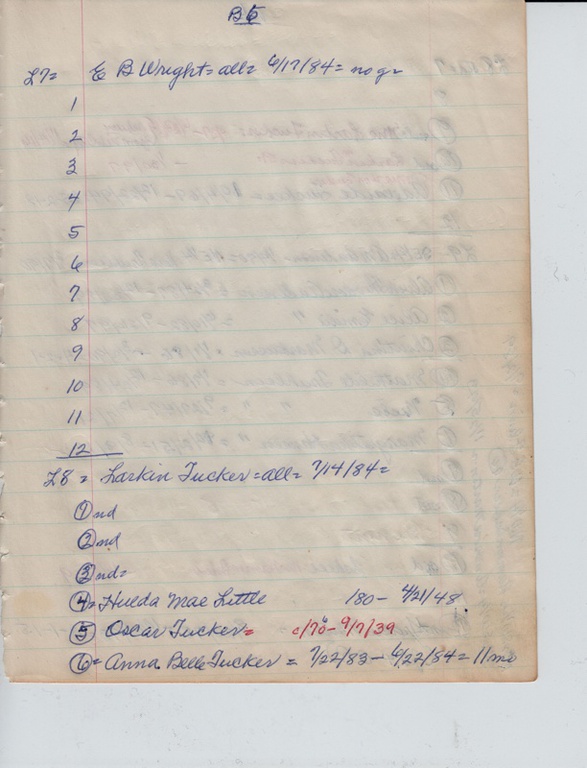 B5
L7= E B Wright = all = 6/17/84 = no g=
1
2
3
4
5
6
7
8
9
10
11
12
L8 = Larkin Tucker = all = 7/14/84 =
① nd
② nd
③ nd=
④= Hulda Mae Little 180 - 4/21/48
⑤ Oscar Tucker = c/70 - 9/7/39
⑥= Anna Belle Tucker = 7/22/83 - 6/22/84 = 11 mo